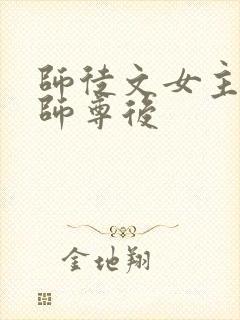 師徒文女主
師尊後
金地翔